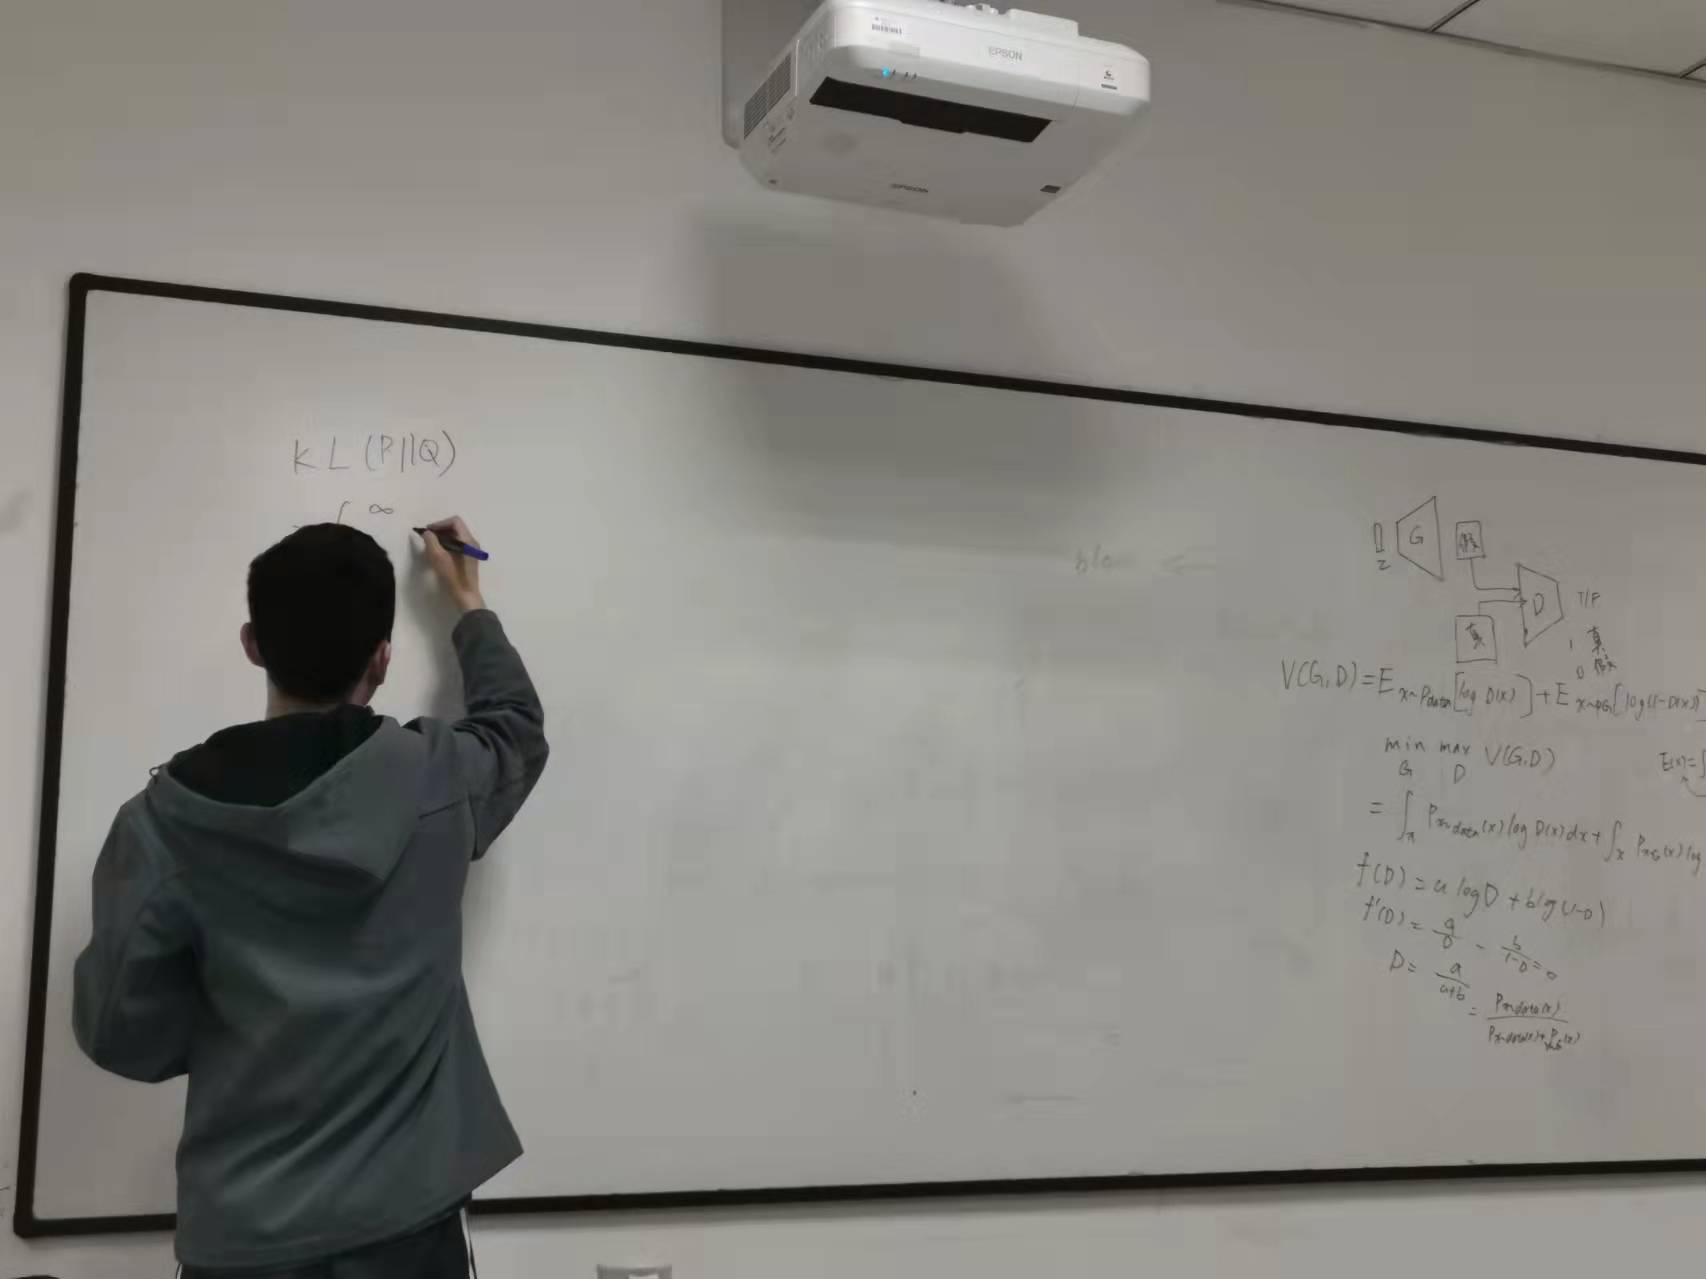 EPSON
EPSON
KL(P||Q)
∞
G
z
假
D
T/F
真
1 真
0 假
V(G,D)=E x~Pdata[log D(x)]+E x~PG[log(1-D(x))]
min max V(G,D)
G D
E(x)=∫
= ∫x Px~data(x) log D(x)dx+∫x Px~G(x) log
f(D)=a logD+blog(1-D)
f'(D)= a/D - b/1-D=0
D= a/a+b
= Px~data(x)/Px~data(x)+Px~G(x)